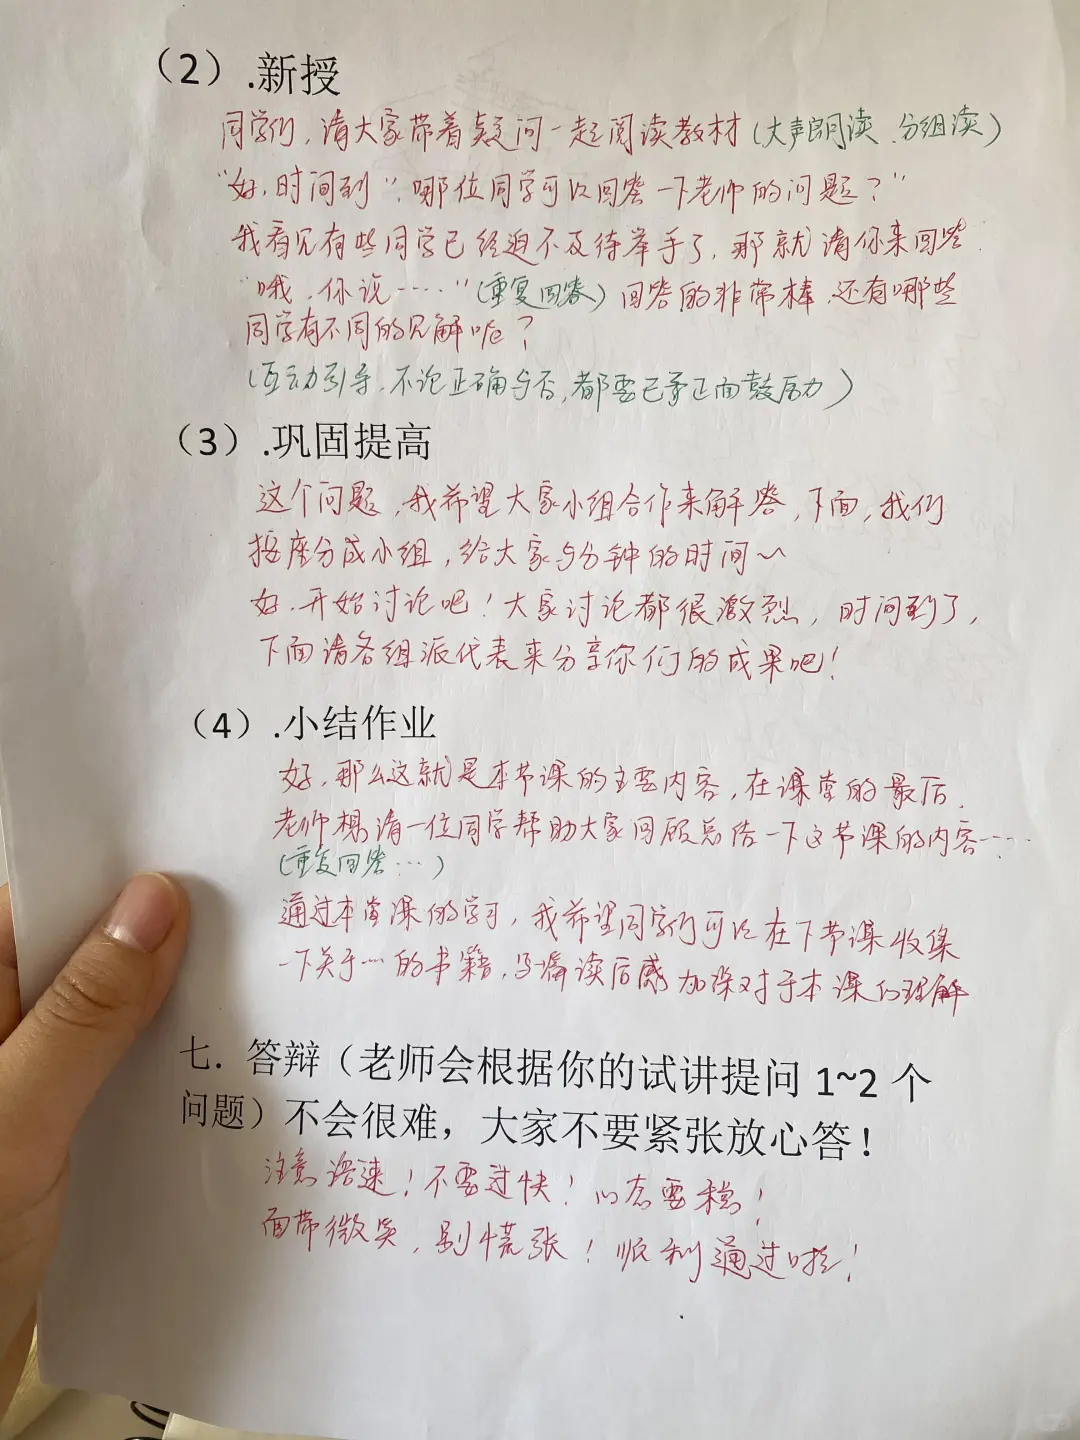 （2）.新授
同学们，请大家带着疑问一起阅读教材（大声朗读、分组读）
“好，时间到”，哪位同学可以回答一下老师的问题？”
我看见有些同学已经迫不及待举手了，那就请你来回答
“哦，你说……”（重复回答）回答的非常棒，还有哪些
同学有不同的见解呢？
（互动引导，不论正确与否，都要已予正面鼓励）
（3）.巩固提高
这个问题，我希望大家小组合作来解答，下面，我们
按座分成小组，给大家5分钟的时间～
好，开始讨论吧！大家讨论都很激烈，时间到了，
下面请各组派代表来分享你们的成果吧！
（4）.小结作业
好，那么这就是本节课的主要内容，在课堂的最后，
老师想请一位同学帮助大家回顾总结一下这节课的内容……
（重复回答…）
通过本堂课的学习，我希望同学们可以在下节课收集
一下关于…的书籍，写篇读后感加深对于本课的理解
七．答辩（老师会根据你的试讲提问 1~2 个
问题）不会很难，大家不要紧张放心答！
注意语速！不要过快！心态要稳！
面带微笑，别慌张！顺利通过啦！